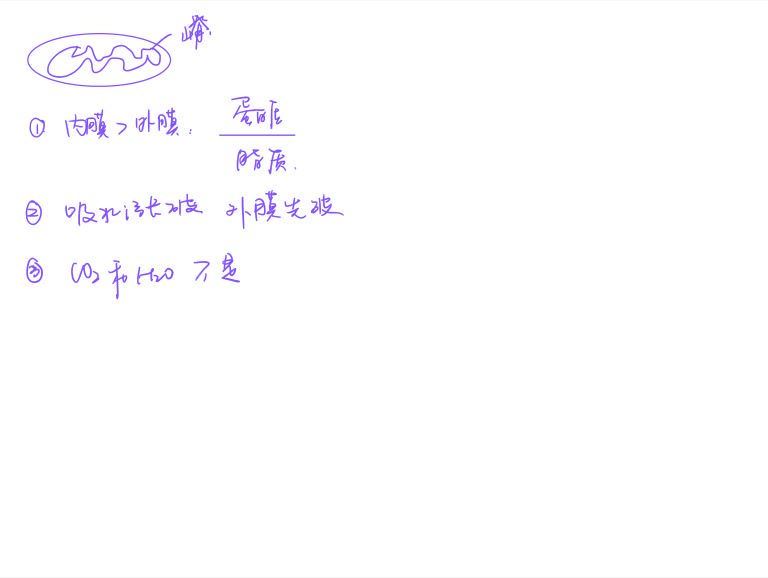 嵴
① 内膜>外膜: 蛋白质
脂质.
② 吸水涨破 外膜先破
③ CO₂和H₂O 不是